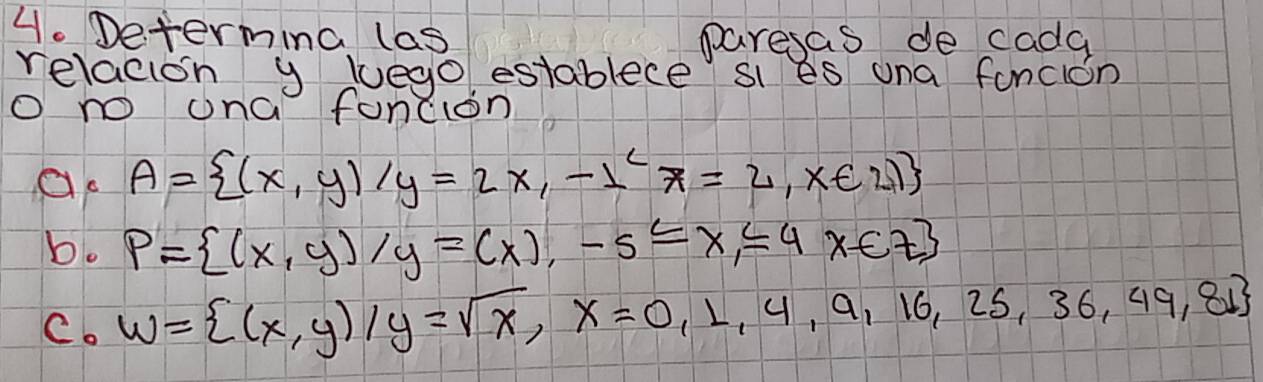 4. Determina las parejas de cada
relación y luego establece si es una función
o no una función
a. A={(x, y)/y=2x, -1< x = 2, x∈Z)}
b. P={(x, y)/y=(x), -5≤x,≤4 x∈Z}
c. W={(x,y)/y=√x, x=0,1,4,9,16,25,36,49,81}